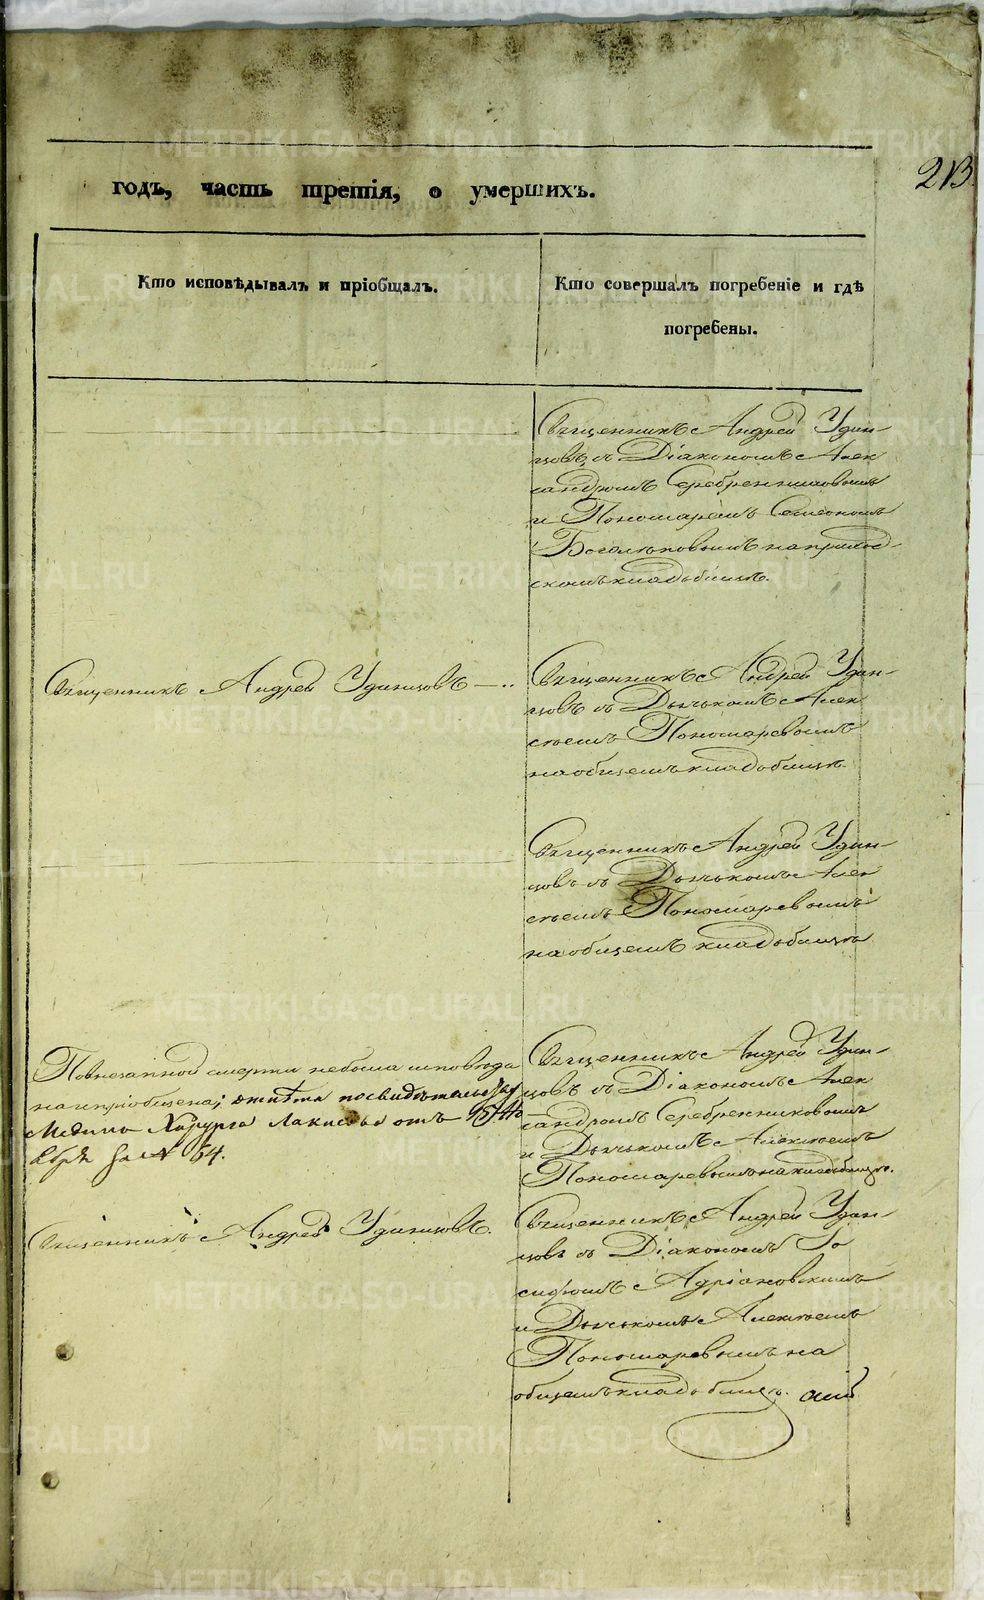 213
годъ, часть третія, о умершихъ.
Кто исповѣдывалъ и пріобщалъ.
Кто совершалъ погребеніе и гдѣ
погребены.
Священникъ Андрей Удин-
цовъ съ Діакономъ Алек
сандромъ Серебренниковымъ
и Пономаремъ Симеономъ
Боголюповымъ на приход-
скомъ кладбищѣ.
Священникъ Андрей Удинцовъ
Священникъ Андрей Удин-
цовъ съ Дьячкомъ Алек
сѣемъ Пономаревымъ
на общемъ кладбищѣ.
Священникъ Андрей Удин-
цовъ съ Дьячкомъ Алек
сѣемъ Пономаревымъ
на общемъ кладбищѣ
По внезапной смерти небыла исповѣда
на и пріобщена; отпѣта по свидѣтельству
Медико Хирурга отъ
бря за № 54.
Священникъ Андрей Удин-
цовъ съ Діакономъ Алек
сандромъ Серебренниковымъ
и Дьячкомъ Алексѣемъ
Пономаревымъ на кладбищѣ.
Священникъ Андрей Удинцовъ.
Священникъ Андрей Удин-
цовъ съ Діакономъ Іо
сифомъ Адріановскимъ
и Дьячкомъ Алексѣемъ
Пономаревымъ на
общемъ кладбищѣ.
METRIKI.GASO-URAL.RU